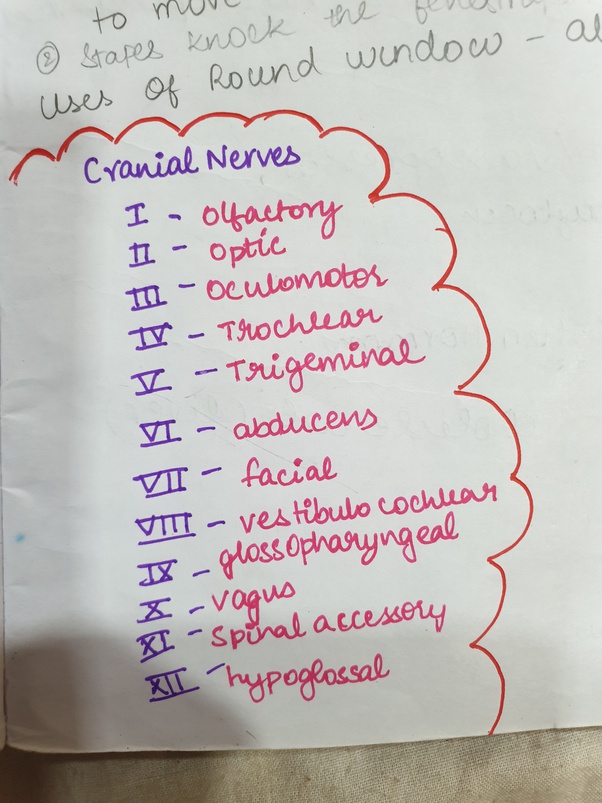 to move
② Stapes knock the
Uses of Round window –
Cranial Nerves
I - Olfactory
II - Optic
III - Oculomotor
IV - Trochlear
V - Trigeminal
VI - abducens
VII - facial
VIII - vestibulo cochlear
IX - glossopharyngeal
X - vagus
XI - spinal accessory
XII - hypoglossal